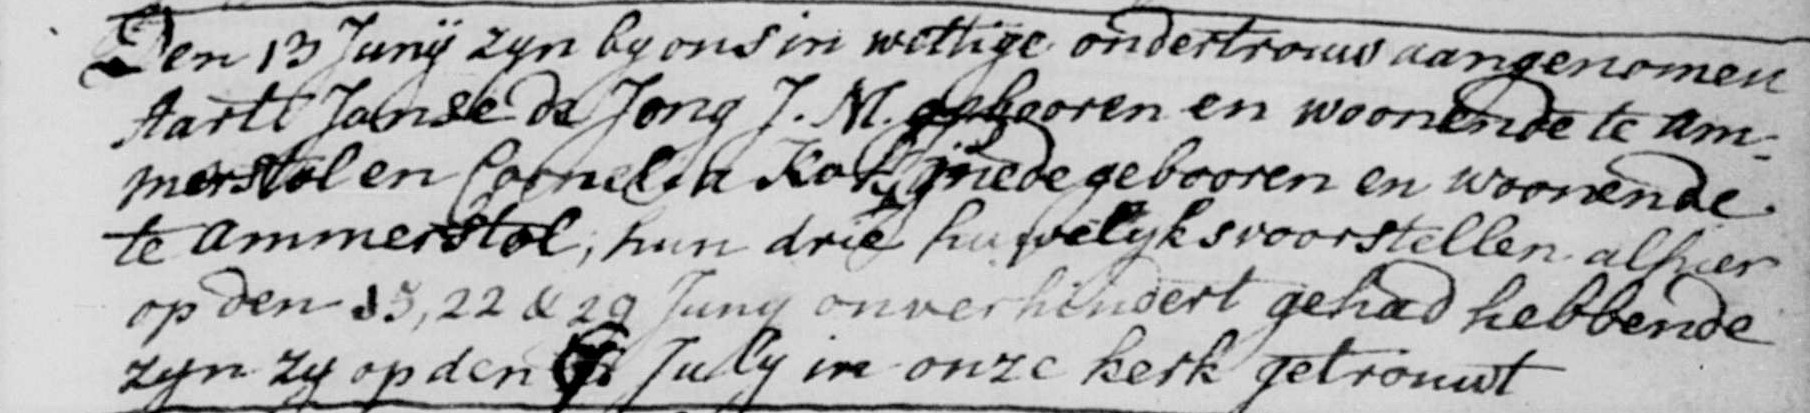 Den 13 Junij zyn by ons in wettige ondertrouw aangenomen
Aart Janse de Jong J. M. gebooren en woonende te Am-
merstol en Cornelia Kok mede gebooren en woonende
te Ammerstol, hun drie huwelyksvoorstellen alhier
op den 15, 22 & 29 Juny onverhindert gehad hebbende
zyn zy op den July in onze kerk getrouwt